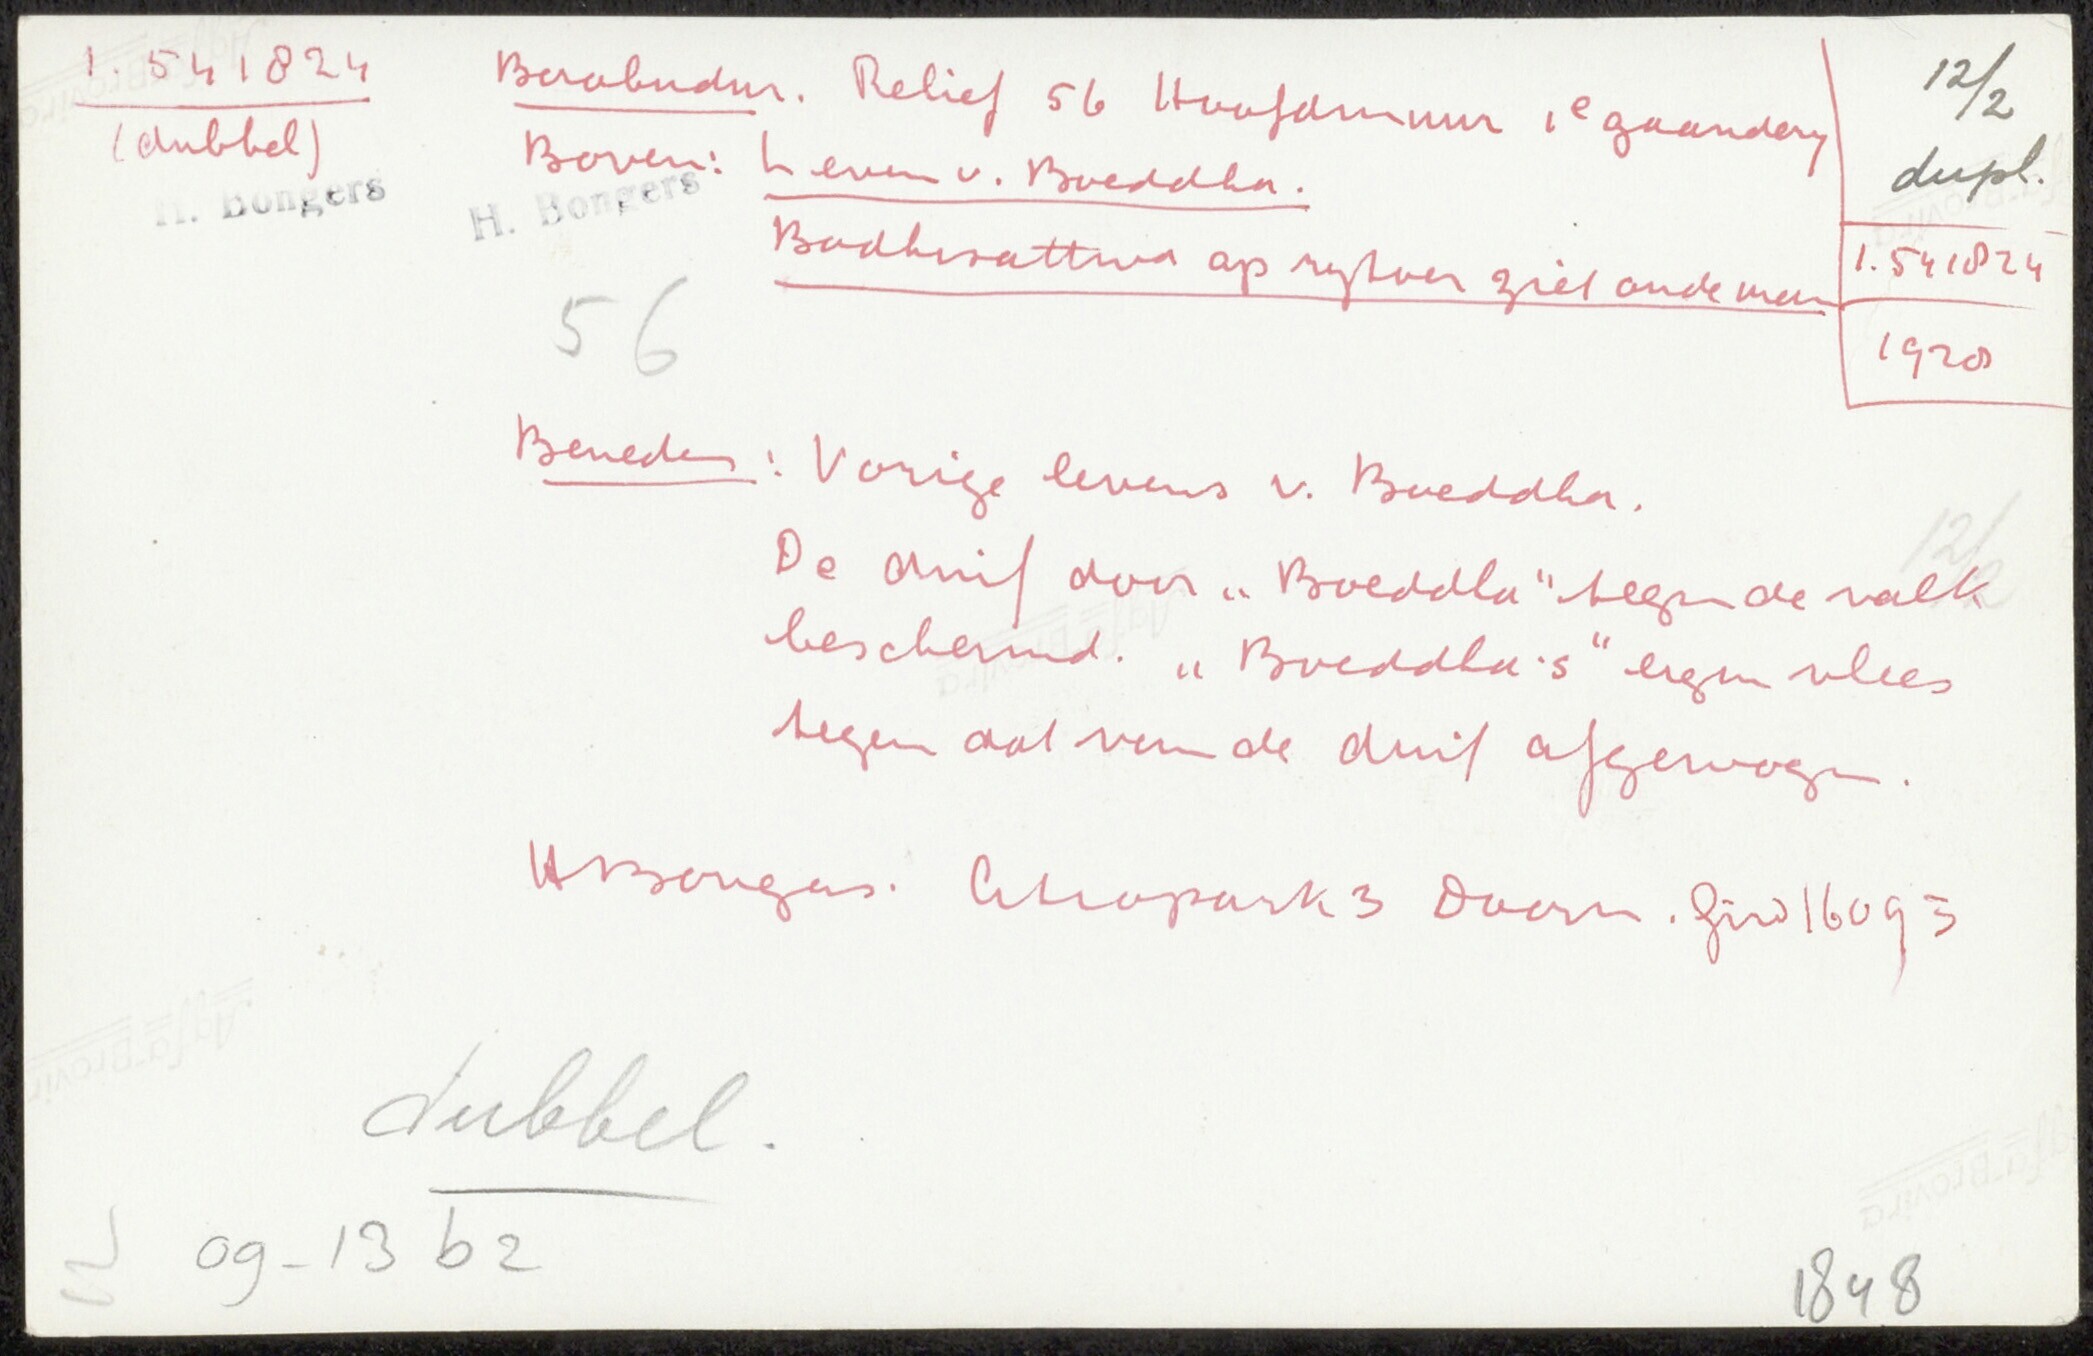 1.541824
(dubbel)
H. Bongers
Borobudur. Relief 56 Hoofdmuur 1e gaandery
Boven: Leven v. Boeddha.
H. Bongers
Bodhisattwa op rytoer ziet oude man
12/2
dupl.
1.541824
1928
56
Beneden: Vorige levens v. Boeddha.
12/2
De duif door „Boeddha" tegen de valk
beschermd. „Boeddha's" eigen vlees
tegen dat van de duif afgewogen.
HBongers. Citropark 3 Doorn. Giro 16093
dubbel.
og-13 b2
1848